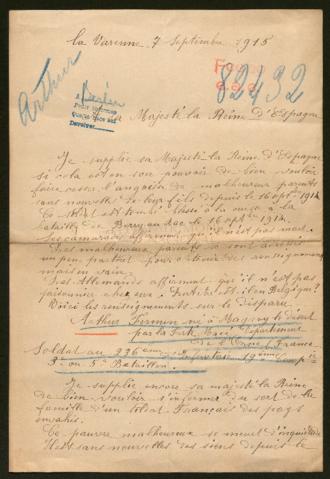 La Varenne 7 Septembre 1915
Arthur
82492
A
Pour informes
Devolver
sa Majesté la Reine d'Espagne
Je supplie sa Majesté la Reine d'Espagne
si cela est en son pouvoir de bien vouloir
faire cesser l'angoisse de malheureux parents
sans nouvelles de leur fils depuis le 16 sept 1914
Ce soldat est tombé blessé à la cuisse à la
bataille de le 16 sept 1914.
Ses camarades affirment qu'il n'est pas mort.
Ses malheureux parents se sont adressés
un peu partout pour obtenir des renseignements
mais en vain.
Les Allemands affirment qu'il n'est pas
prisonnier chez eux. Peut-être est-il en Belgique?
Voici les renseignements sur le disparu.
Arthur né à Magny le désert
par la Ferté Macé Département
de l'Orne France
Soldat au 236ème d'Infanterie 19ème Compie
5 ou 5e Bataillon.
Je supplie encore sa majesté la Reine
de bien vouloir s'informer du sort de la
famille d'un soldat Français des pays
envahis.
Ce pauvre malheureux se meurt d'inquiétude
sans nouvelles des siens depuis le